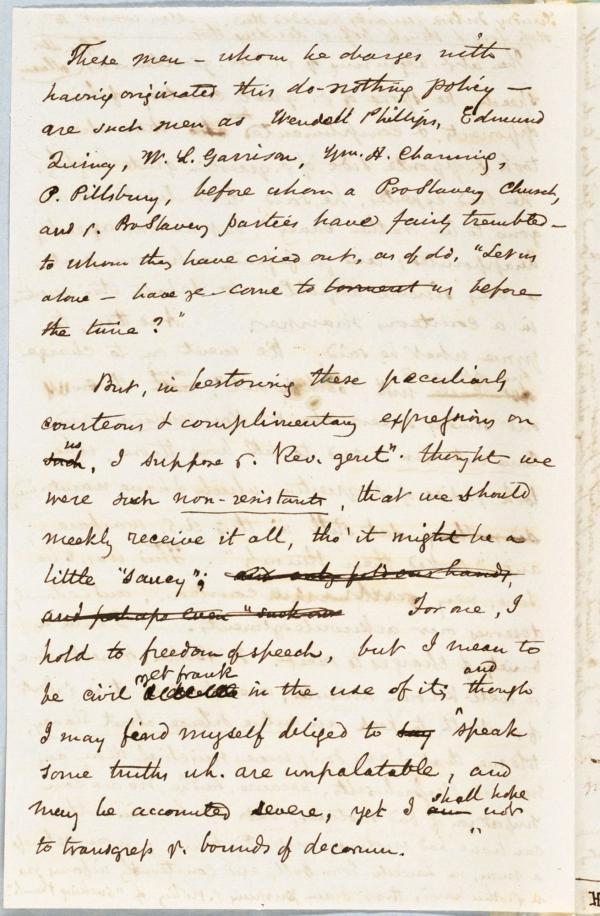 These men – whom he charges with
having originated this do-nothing policy –
are such men as Wendell Phillips, Edmund
Quincy, W. L. Garrison, Wm. H. Channing,
P. Pillsbury, before whom a ProSlavery Church,
and ye. ProSlavery parties have fairly trembled –
to whom they have cried out, as of old, "Let us
alone – have ye come to torment us before
the time?"
But, in bestowing these peculiarly
courteous & complimentary expressions on
such us, I suppose ye. Rev. gent". thought we
were such non-resistants, that we should
meekly receive it all, tho' it might be a
little "saucy";
and perhaps even For one, I
hold to freedom of speech, but I mean to
be civil yet frank in the use of it; and though
I may find myself obliged to say speak
some truths wh. are unpalatable, and
may be accounted severe, yet I am shall hope not
to transgress ye. bounds of decorum.